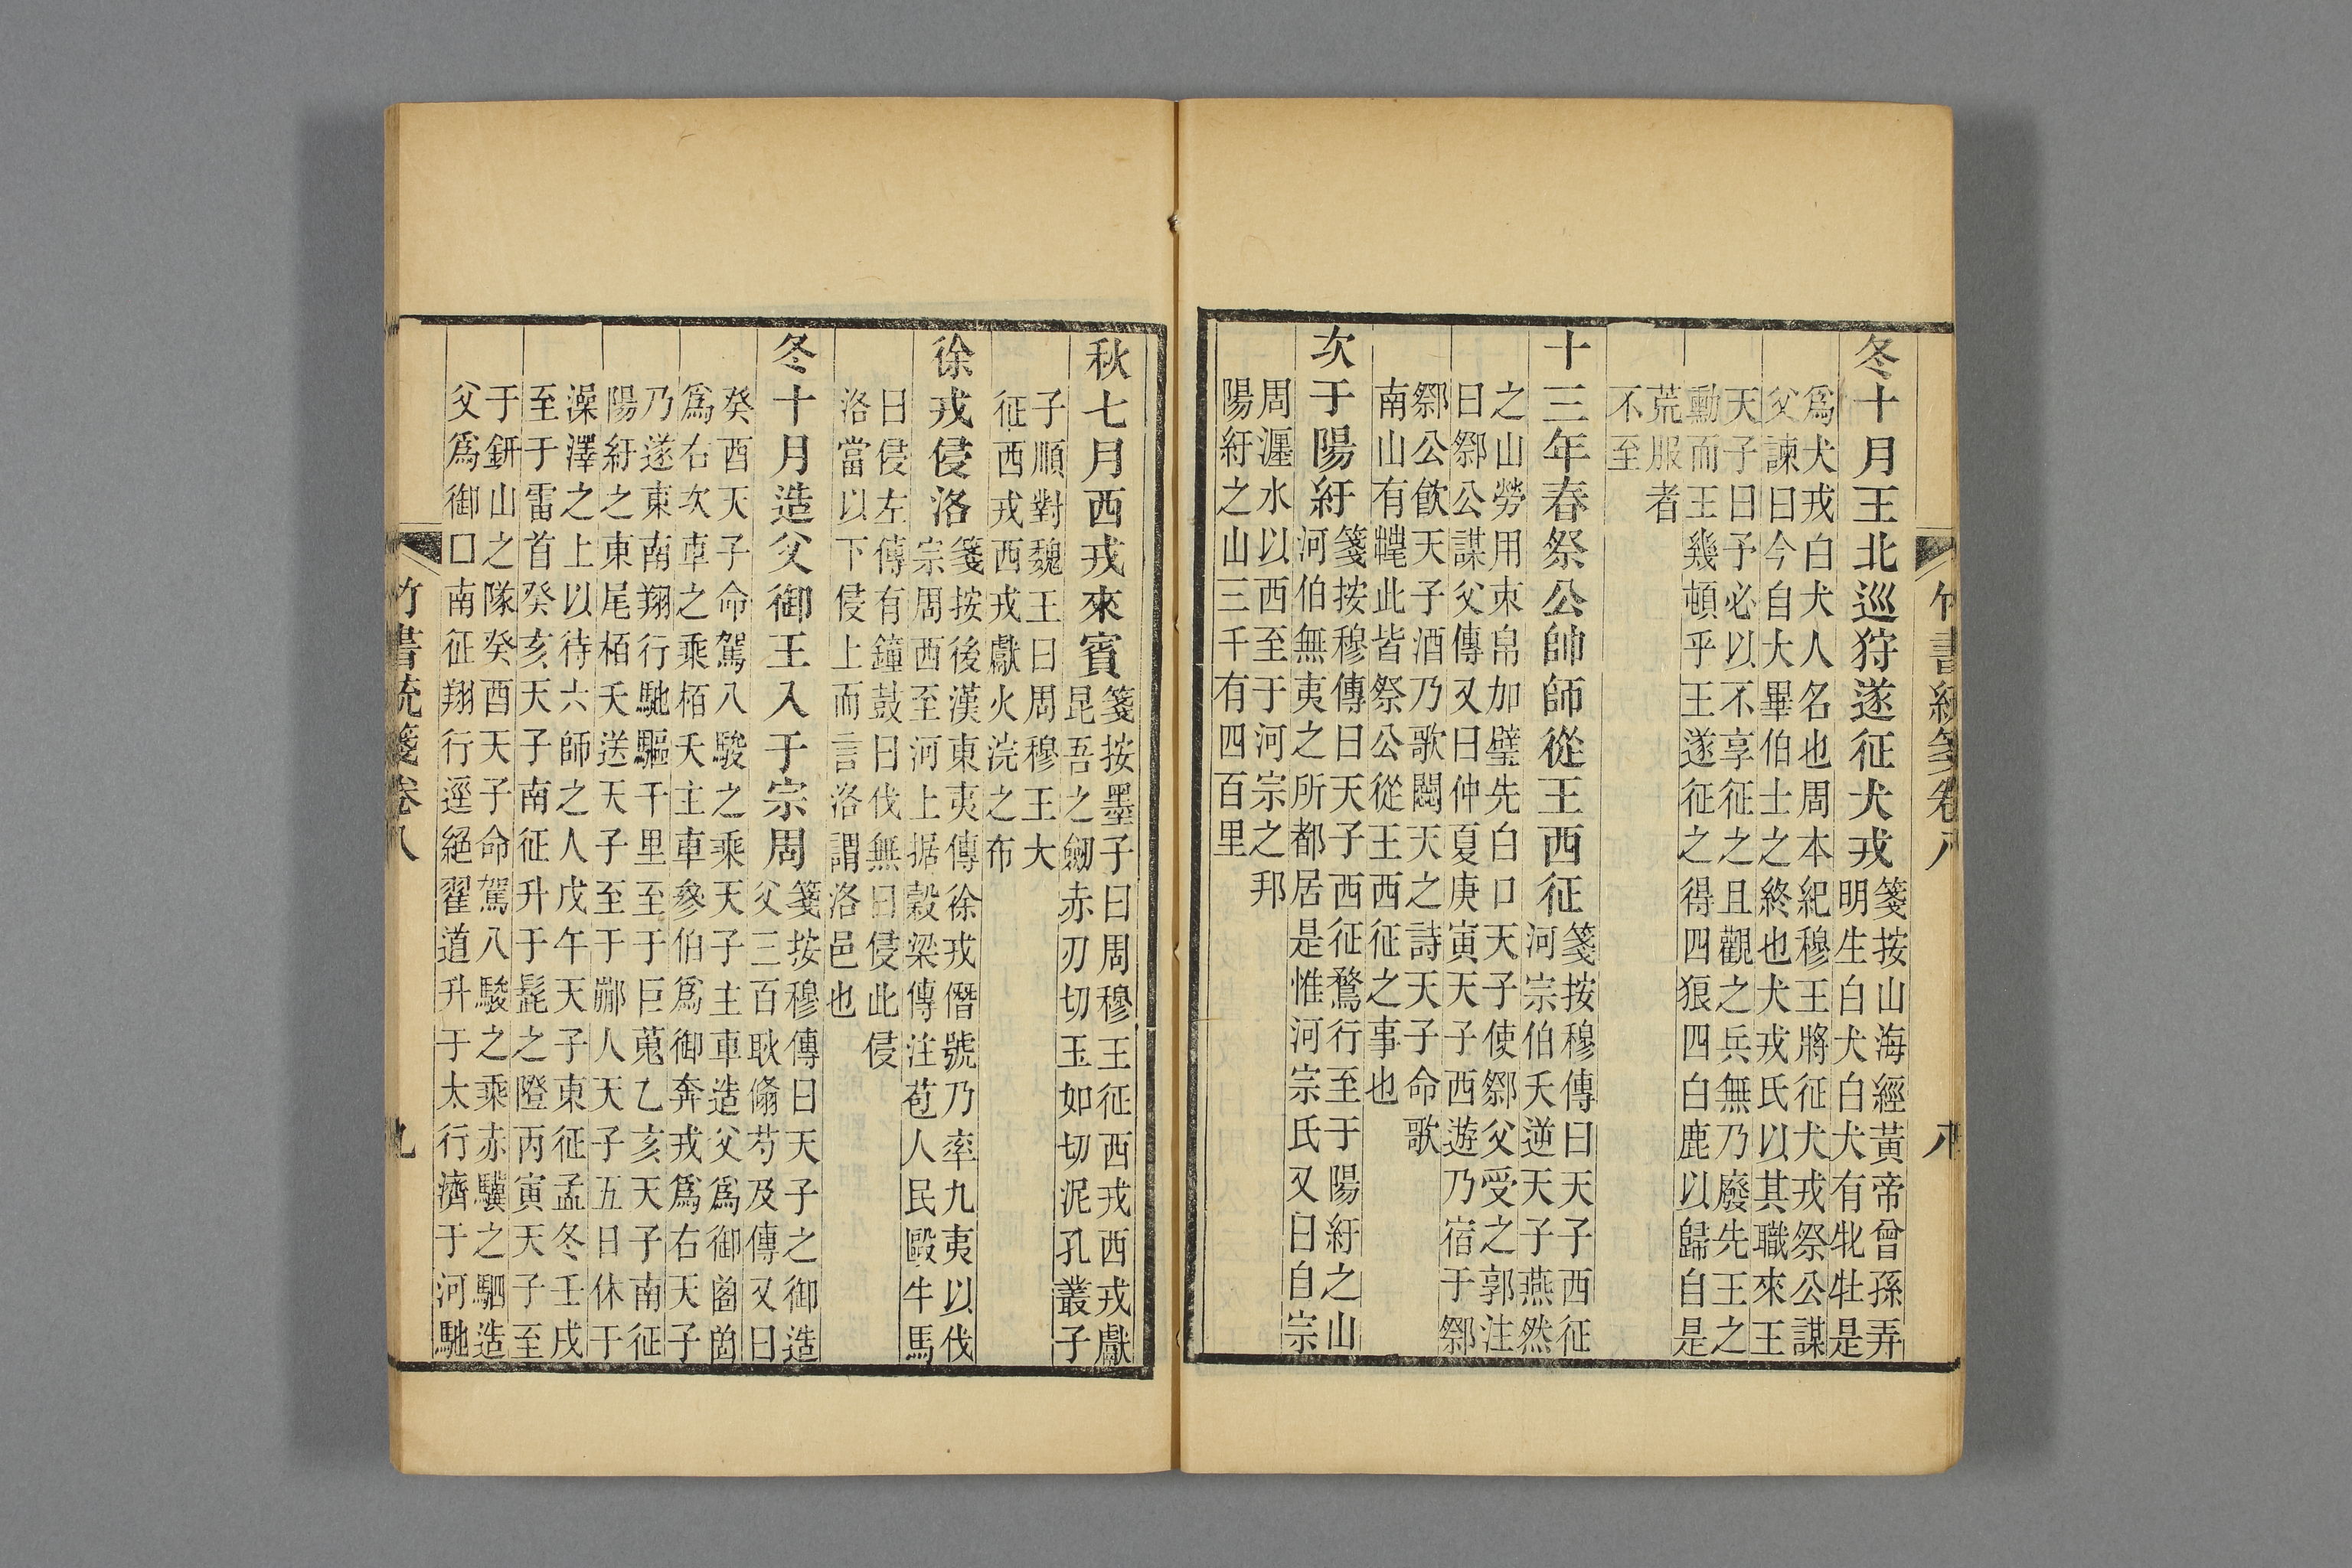 竹書統箋卷八　八
冬十月王北巡狩遂征犬戎箋按山海經黃帝曾孫弄
明生白犬白犬有牝牡是
爲犬戎白犬人名也周本紀穆王將征犬戎祭公謀
父諫曰今自大畢伯士之終也犬戎氏以其職來王
天子曰予必以不享征之且觀之兵無乃廢先王之
勳而王幾頓乎王遂征之得四狼四白鹿以歸自是
荒服者
不至
十三年春祭公帥師從王西征箋按穆傳曰天子西征
河宗伯夭逆天子燕然
之山勞用束帛加璧先白口天子使父受之郭注
曰公謀父傳又曰仲夏庚寅天子西遊乃宿于
公飲天子酒乃歌天之詩天子命歌
南山有此皆祭公從王西征之事也
次于陽紆箋按穆傳曰天子西征鶩行至于陽紆之山
河伯無夷之所都居是惟河宗氏又曰自宗
周瀍水以西至于河宗之邦
陽紆之山三千有四百里
秋七月西戎來賓箋按墨子曰周穆王征西戎西戎獻
昆吾之劒赤刃切玉如切泥孔叢子
子順對魏王曰周穆王大
征西戎西戎獻火浣之布
徐戎侵洛箋按後漢東夷傳徐戎僭號乃率九夷以伐
宗周西至河上据穀梁傳注苞人民毆牛馬
曰侵左傳有鐘鼓曰伐無曰侵此侵
洛當以下侵上而言洛謂洛邑也
冬十月造父御王入于宗周箋按穆傳曰天子之御造
父三百耿翛芍及傳又曰
癸酉天子命駕八駿之乘天子主車造父爲御
爲右次車之乘栢夭主車參伯爲御奔戎爲右天子
乃遂東南翔行馳驅千里至于巨蒐乙亥天子南征
陽紆之東尾栢夭送天子至于䣙人天子五日休于
澡澤之上以待六師之人戊午天子東征孟冬壬戌
至于雷首癸亥天子南征升于髭之隥丙寅天子至
于鈃山之隊癸酉天子命駕八駿之乘赤驥之駟造
父爲御口南征翔行逕絕翟道升于太行濟于河馳
竹書統箋卷八　九